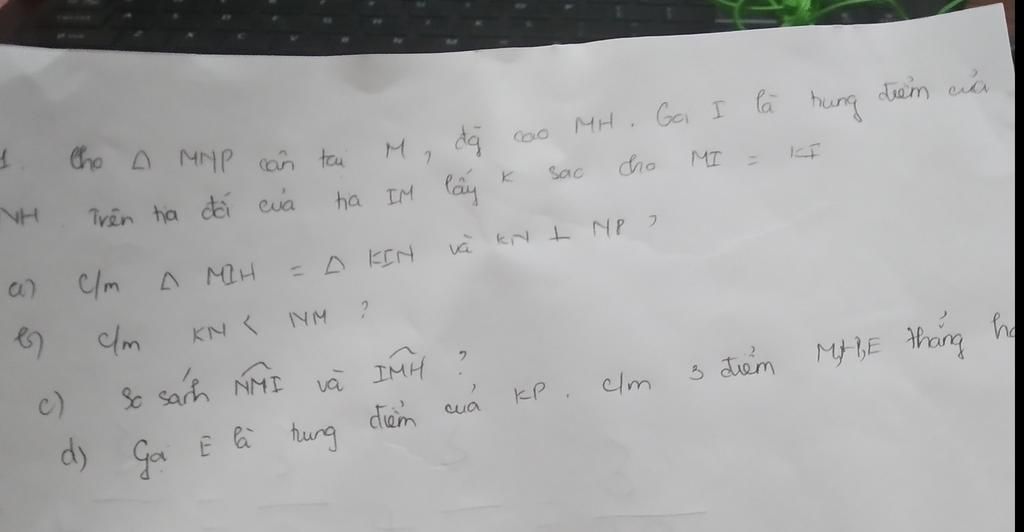 1. Cho Δ MNP cân tại M, đg cao MH. Gọi I là trung điểm của
NH. Trên tia đối của tia IM lấy K sao cho MI = KI
a) C/m Δ MIH = Δ KIN và KN ⊥ NP ?
b) c/m KN < NM ?
c) So sánh NMI và IMH ?
d) Gọi E là trung điểm của KP. C/m 3 điểm M,H,E thẳng